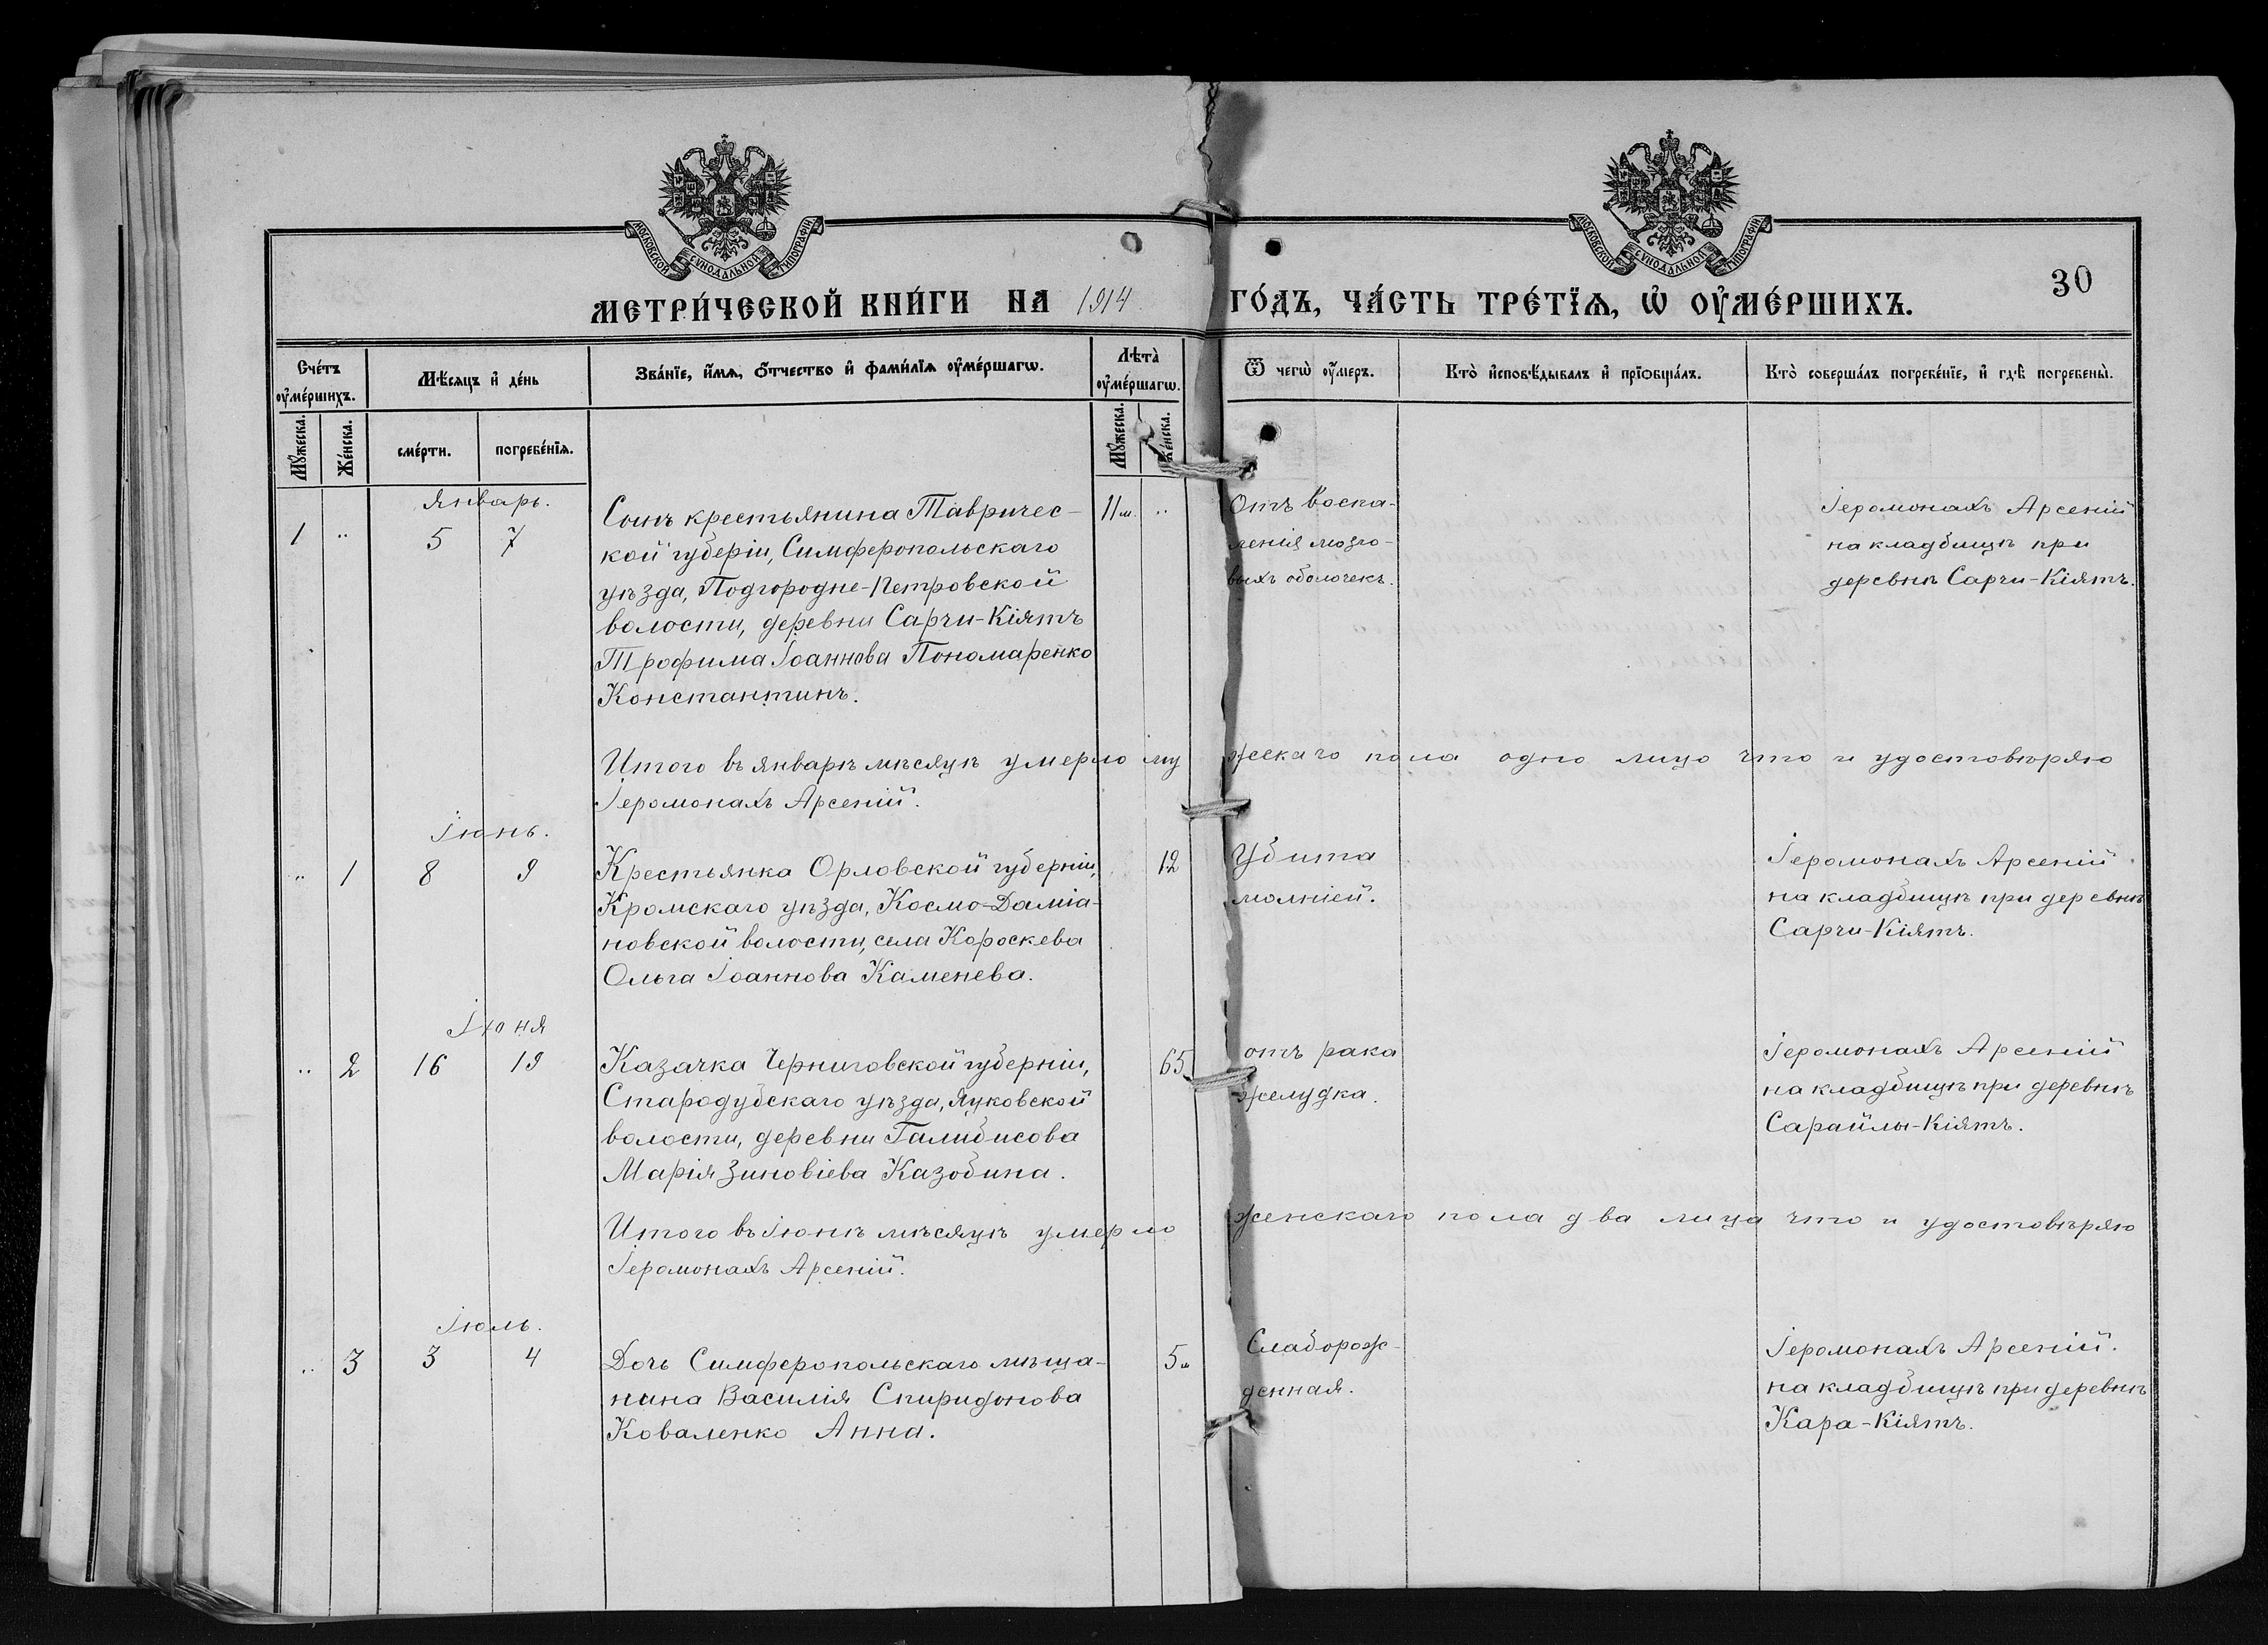 МОСКОВСКОЙ СѴНОДАЛЬНОЙ ТИПОГРАФІИ
МОСКОВСКОЙ СѴНОДАЛЬНОЙ ТИПОГРАФІИ
30
МЕТРИ́ЧЕСКОЙ КНИ́ГИ НА 1914 ГО́ДЪ, ЧА́СТЬ ТРЕ́ТЇѦ, Ѡ҆ ОУ҆МЕ́РШИХЪ.
Сче́тъ оу҆ме́ршихъ.
Мѣ́сяцъ и҆ де́нь
Зва́нїе, и҆́мѧ, ѻ҆́тчество и҆ фами́лїѧ оу҆ме́ршагѡ.
Лѣта̀ оу҆ме́ршагѡ.
Ѿ чегѡ̀ оу҆́меръ.
Кто̀ и҆сповѣ́дывалъ и҆ прїѻбща́лъ.
Кто̀ соверша́лъ погребе́нїе, и҆ гдѣ̀ погребены̀.
Мꙋ́жеска.
Же́нска.
сме́рти.
погребе́нїѧ.
Мꙋ́жеска.
Же́нска.
Январь.
1 ״ 5 7
Сынъ крестьянина Тавричес-
кой губеріи, Симферопольскаго
уѣзда, Подгородне-Петровской
волости, деревни Сарчи-Кіятъ
Трофима Іоаннова Пономаренко
Константинъ.
11 м. ״
Отъ воспа-
ленія мозго-
выхъ оболочекъ.
Іеромонахъ Арсеній
на кладбищѣ при
деревнѣ Сарчи-Кіятъ.
Итого въ январѣ мѣсяцѣ умерло мужескаго пола одно лицо что и удостовѣряю
Іеромонахъ Арсеній.
Іюнь.
״ 1 8 9
Крестьянка Орловской губерніи,
Кромскаго уѣзда, Космо-Даміа-
новской волости, села Короскева
Ольга Іоаннова Каменева.
12
Убита
молніей.
Іеромонахъ Арсеній
на кладбищѣ при деревнѣ
Сарчи-Кіятъ.
Іюня
״ 2 16 19
Казачка Черниговской губерніи,
Стародубскаго уѣзда, Яцковской
волости, деревни Галибисова
Марія Зиновіева Казобина.
65
отъ рака
желудка.
Іеромонахъ Арсеній
на кладбищѣ при деревнѣ
Сарайлы-Кіятъ.
Итого въ Іюнѣ мѣсяцѣ умерло женскаго пола два лица что и удостовѣряю
Іеромонахъ Арсеній.
Іюль.
״ 3 3 4
Дочь Симферопольскаго мѣща-
нина Василія Спиридонова
Коваленко Анна.
5 м
Слаборож-
денная.
Іеромонахъ Арсеній.
на кладбищѣ при деревнѣ
Кара-Кіятъ.